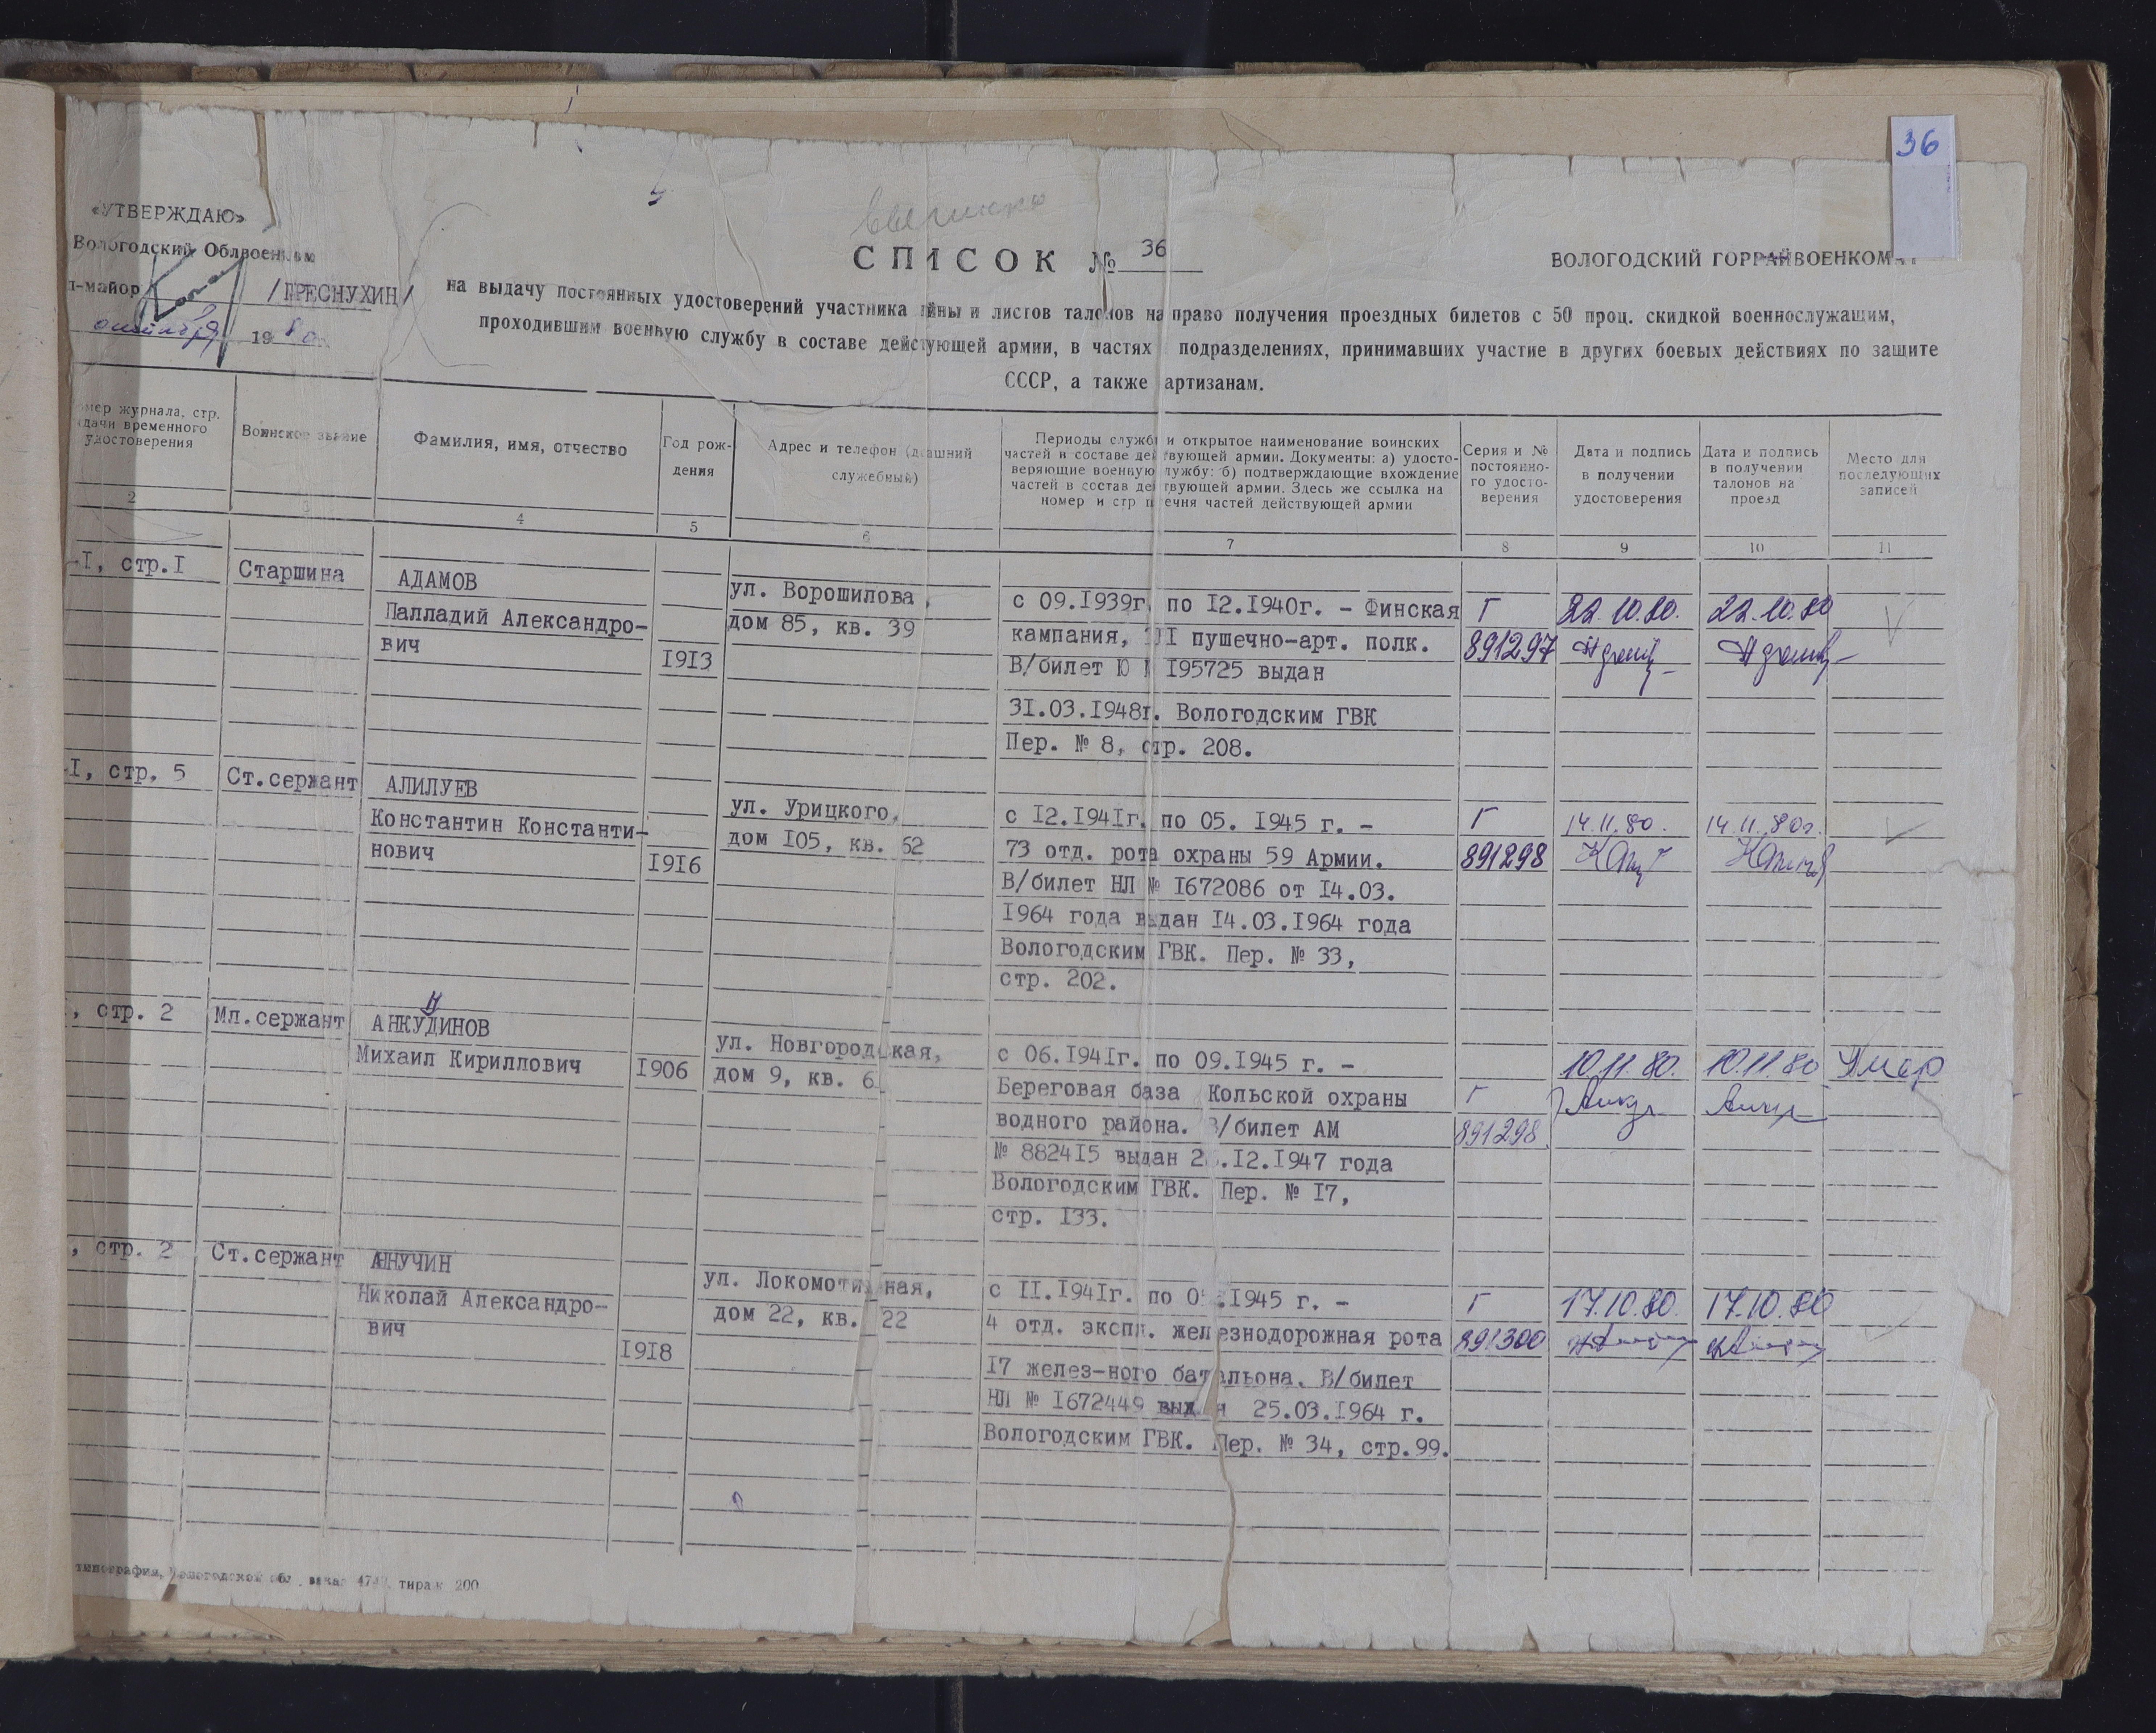 36
«УТВЕРЖДАЮ»
Вологодский Облвоенком
л-майор /ПРЕСНУХИН/
октября 1980
СПИСОК № 36
ВОЛОГОДСКИЙ ГОРРАЙВОЕНКОМАТ
на выдачу постоянных удостоверений участника йны и листов талонов на право получения проездных билетов с 50 проц. скидкой военнослужащим,
проходившим военную службу в составе действующей армии, в частях подразделениях, принимавших участие в других боевых действиях по защите
СССР, а также артизанам.
мер журнала, стр.
дачи временного
удостоверения
2
Воинское звание
3
Фамилия, имя, отчество
4
Год рож-
дения
5
Адрес и телефон (д ашний
служебный)
6
Периоды службы и открытое наименование воинских
частей в составе действующей армии. Документы: а) удосто-
веряющие военную лужбу: б) подтверждающие вхождение
частей в состав действующей армии. Здесь же ссылка на
номер и стр п ечня частей действующей армии
7
Серия и №
постоянно-
го удосто-
верения
8
Дата и подпись
в получении
удостоверения
9
Дата и подпись
в получении
талонов на
проезд
10
Место для
последующих
записей
11
-I, стр.I
Старшина
АДАМОВ
Палладий Александро-
вич
1913
ул. Ворошилова,
дом 85, кв. 39
с 09.1939г. по 12.1940г. - Финская
кампания, I пушечно-арт. полк.
В/билет Ю № 195725 выдан
31.03.1948г. Вологодским ГВК
Пер. № 8, стр. 208.
Г
891297
22.10.80.
22.10.80
-I, стр. 5
Ст.сержант
АЛИЛУЕВ
Константин Константи-
нович
1916
ул. Урицкого,
дом 105, кв. 62
с 12.1941г. по 05. 1945 г. -
73 отд. рота охраны 59 Армии.
В/билет НЛ № 1672086 от 14.03.
1964 года выдан 14.03.1964 года
Вологодским ГВК. Пер. № 33,
стр. 202.
Г
891298
14.11.80.
14.11.80г.
, стр. 2
Мл.сержант
АНКУДИНОВ
Михаил Кириллович
1906
ул. Новгородская,
дом 9, кв. 6
с 06.1941г. по 09.1945 г. -
Береговая база Кольской охраны
водного района. В/билет АМ
№ 882415 выдан 2 .12.1947 года
Вологодским ГВК. Пер. № 17,
стр. 133.
Г
891298.
10.11.80.
10.11.80
Умер
, стр. 2
Ст.сержант
АННУЧИН
Николай Александро-
вич
1918
ул. Локомотивная,
дом 22, кв. 22
с 11.1941г. по 0 .1945 г. -
4 отд. экспл. железнодорожная рота
17 желез-ного батальона. В/билет
НЛ № 1672449 выдан 25.03.1964 г.
Вологодским ГВК. Пер. № 34, стр.99.
Г
891300
17.10.80.
17.10.80
типография, Вологодской обл. заказ тираж 200